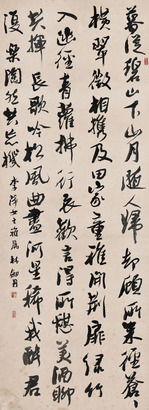 暮從碧山下山月隨人歸却顧所來徑蒼〻
橫翠微相攜及田家童稚開荊扉綠竹
入幽徑青蘿拂行衣歡言得所憩美酒聊
共揮長歌吟松風曲盡河星稀我醉君
復樂陶然共忘機 李萍女士雅屬